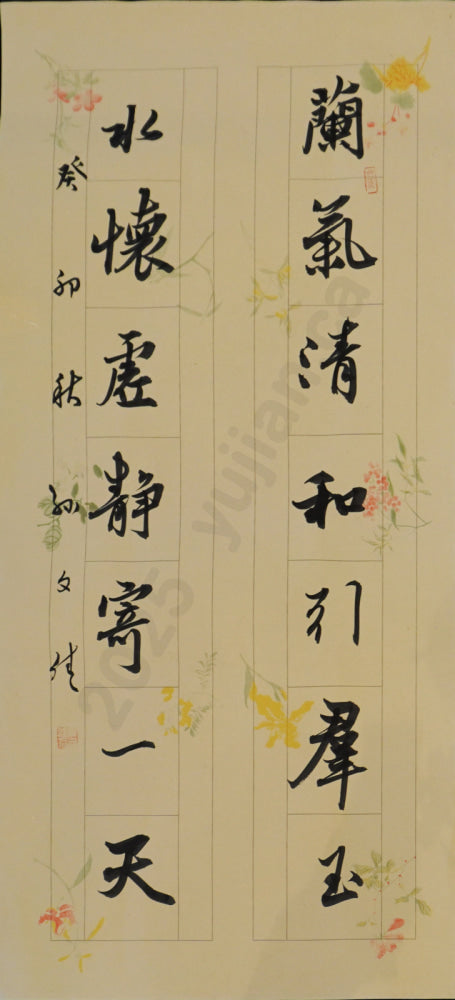 蘭氣清和引羣玉
水懷虛靜寄一天
癸卯秋孫文佳
2025 yujian.ca